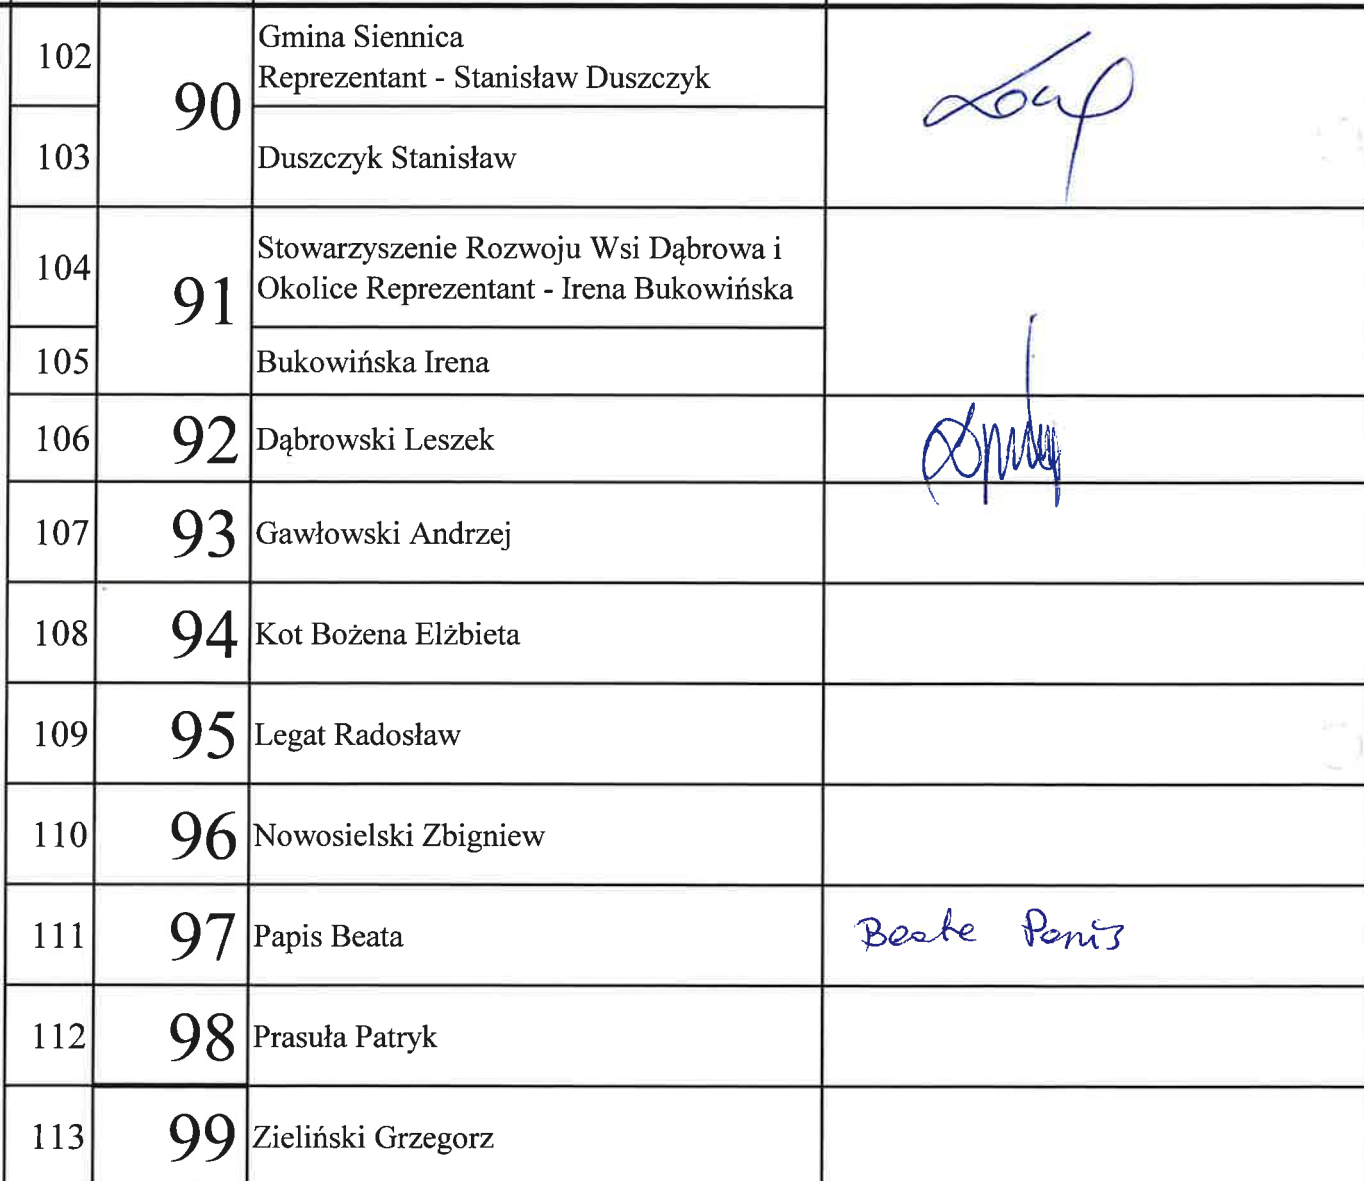 102
90
Gmina Siennica
Reprezentant - Stanisław Duszczyk
103
Duszczyk Stanisław
104
91
Stowarzyszenie Rozwoju Wsi Dąbrowa i
Okolice Reprezentant - Irena Bukowińska
105
Bukowińska Irena
106 92 Dąbrowski Leszek
107 93 Gawłowski Andrzej
108 94 Kot Bożena Elżbieta
109 95 Legat Radosław
110 96 Nowosielski Zbigniew
111 97 Papis Beata Beata Papis
112 98 Prasuła Patryk
113 99 Zieliński Grzegorz